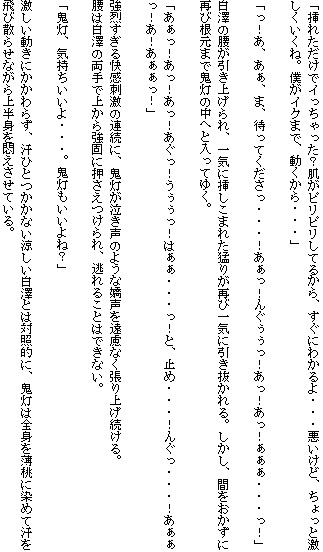 「挿れただけでイっちゃった？肌がビリビリしてるから、すぐにわかるよ・・・悪いけど、ちょっと激
しくいくね。僕がイクまで、動くから・・・」
「っ！あ、あぁ、ま、待ってくださっ・・・！あぁっ！んぐぅぅっ！あっ！あっ！あぁぁぁ・・・っ！」
白澤の腰が引き上げられ、一気に挿しこまれた猛りが再び一気に引き抜かれる。しかし、間をおかずに
再び根元まで鬼灯の中へと入ってゆく。
「あぁっ！あっ！あっ！あっ！あぐっ！うぅぅっ！はぁぁ・・・っ！と、止め・・・！んぐっ・・・！あぁぁ
っ！あ！あぁぁっ！」
強烈すぎる快感刺激の連続に、鬼灯が泣き声のような嬌声を遠慮なく張り上げ続ける。
腰は白澤の両手で上から強固に押さえつけられ、逃れることはできない。
「鬼灯、気持ちいいよ・・・。鬼灯もいいよね？」
激しい動きにかかわらず、汗ひとつかかない涼しい白澤とは対照的に、鬼灯は全身を薄桃に染めて汗を
飛び散らせながら上半身を悶えさせている。